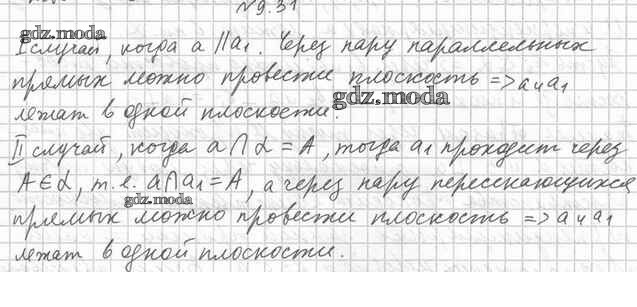 №9.31
gdz.moda
I случай, когда a ∥ a₁. Через пару параллельных
прямых можно провести плоскость => a и a₁
лежат в одной плоскости.
gdz.moda
II случай, когда a ∩ α = A, тогда a₁ проходит через
A ∈ α, т.е. a ∩ a₁ = A, а через пару пересекающихся
gdz.moda
прямых можно провести плоскость => a и a₁
лежат в одной плоскости.